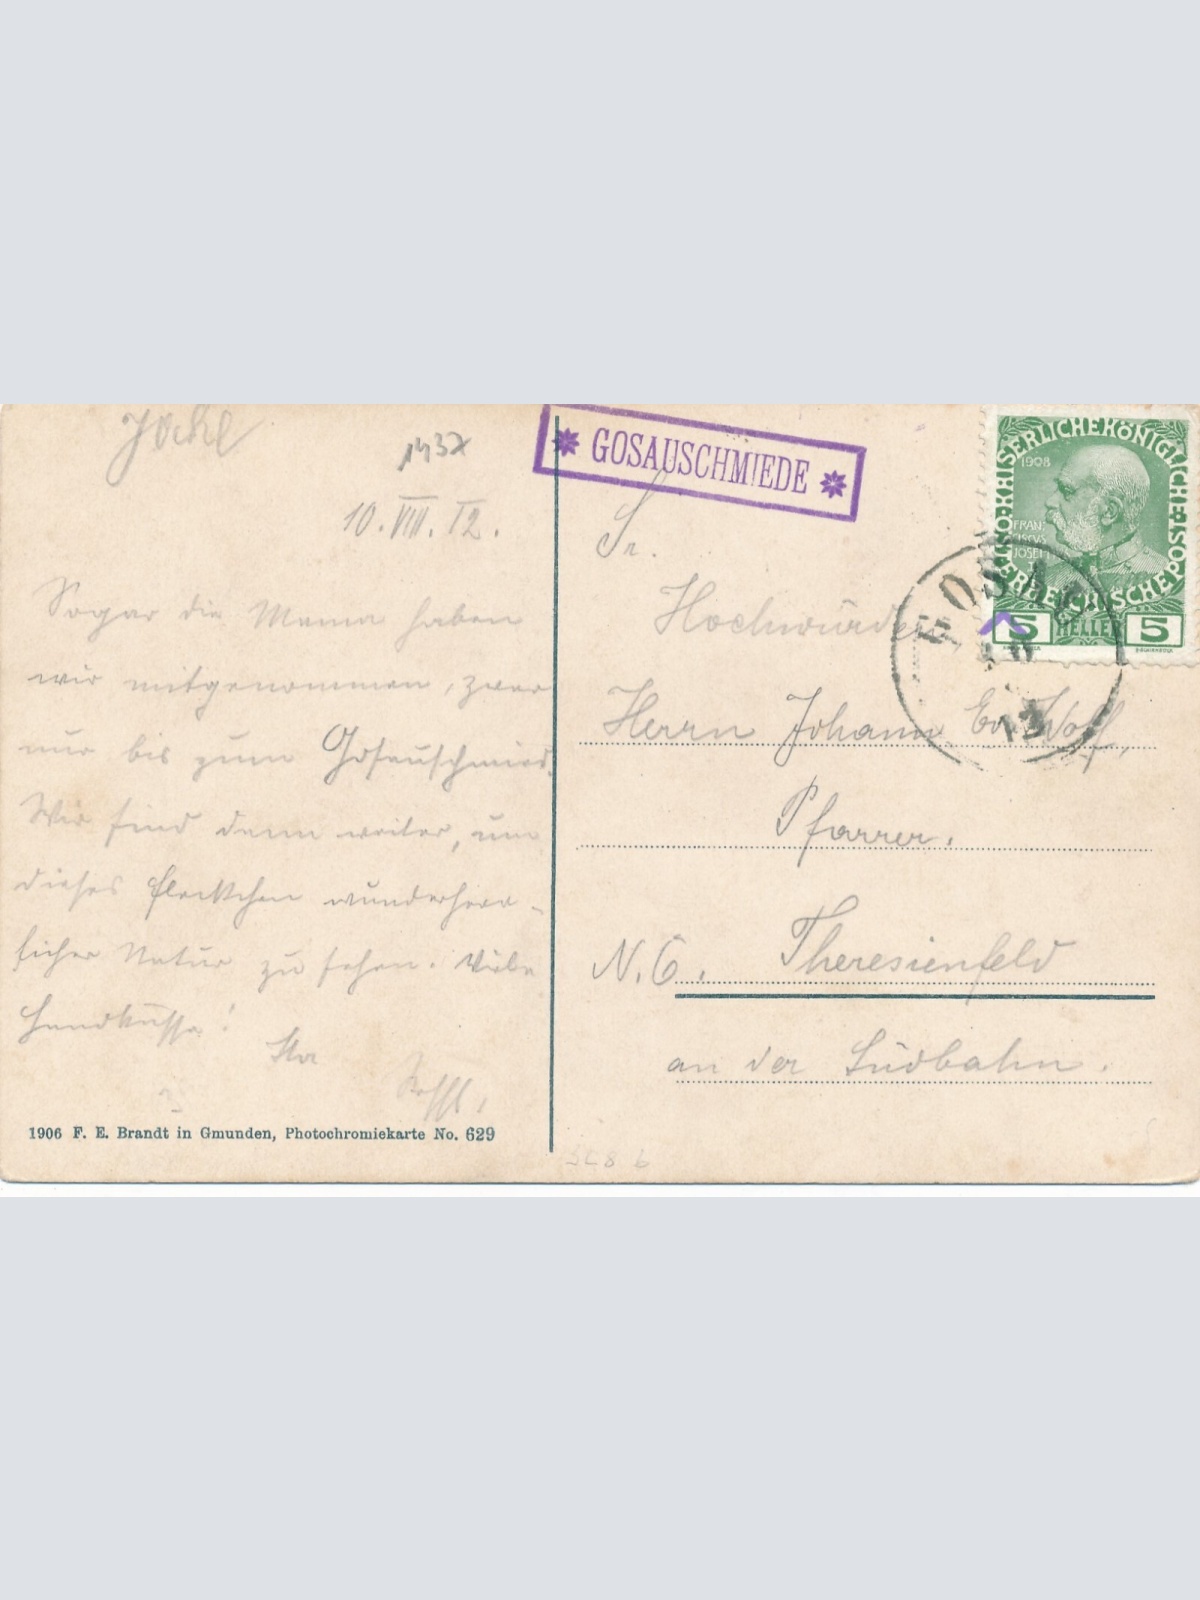 Jockl
1437
10. VIII. 12.
Sogar die Mama haben
wir mitgenommen, zwar
nur bis zum Gosauschmied.
Wir sind dann weiter, um
dieses Fleckchen wunderherr-
licher Natur zu sehen. Viele
Handküsse!
Ihr
1906 F. E. Brandt in Gmunden, Photochromiekarte No. 629
* GOSAUSCHMIEDE *
KAISERLICHE KÖNIGLICHE
ÖSTERREICHISCHE POST
1908
FRAN:
ISCVS
JOSEF I
5 HELLER 5
GOSAU
12
Sr.
Hochwürden
Herrn Johann Ev. Wolf,
Pfarrer.
Theresienfeld
N. Ö.
an der Südbahn.